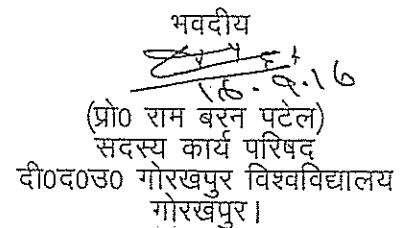 भवदीय
16.9.16
(प्रो0 राम बरन पटेल)
सदस्य कार्य परिषद
दी0द0उ0 गोरखपुर विश्वविद्यालय
गोरखपुर।